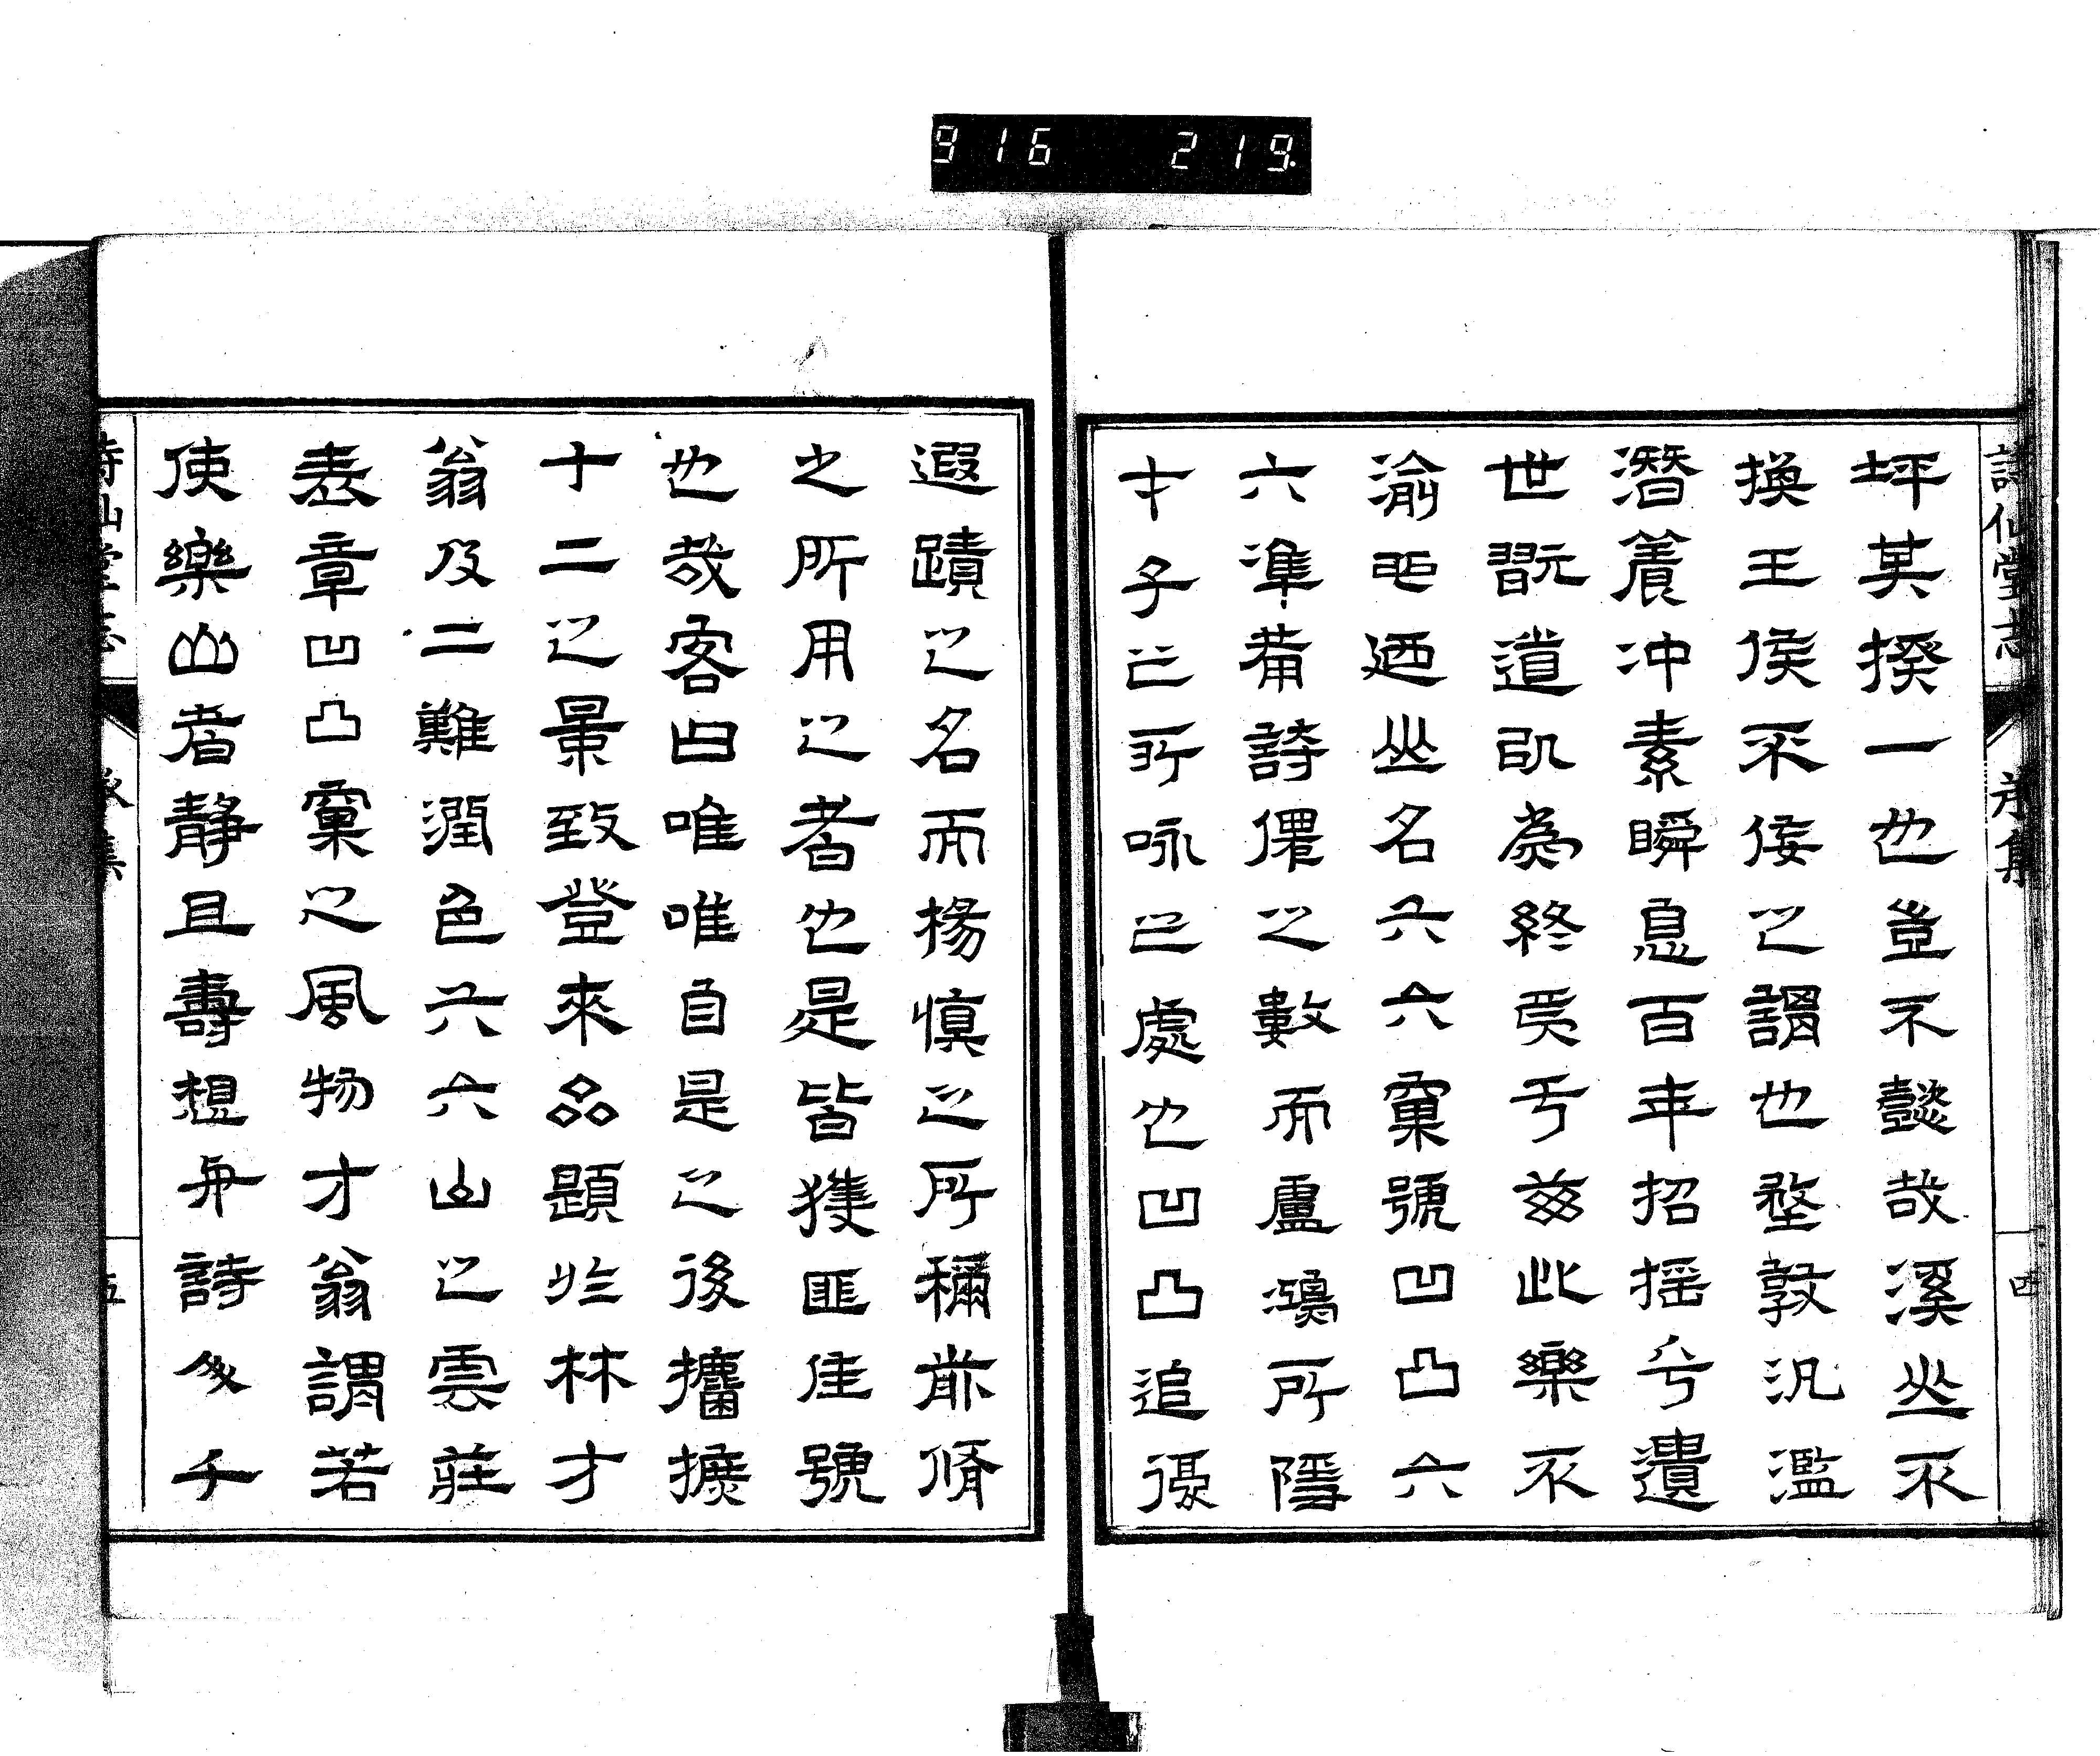 916 219
詩仙堂志 序集 四
坪其揆一也豈不懿哉溪山不
換王侯不侫之謂也登敦汎濫
潛養沖素瞬息百年招搖兮遺
世翫道以為終焉于茲此樂不
渝而迺山名六六窠號凹凸六
六準備詩僊之數而盧鴻所隱
才子之所咏之處也凹凸追復
遐蹟之名而揚慎之所稱前脩
之所用之者也是皆獲匪佳號
也哉客曰唯唯自是之後攟摭
十二之景致登來品題於林才
翁及二難潤色六六山之雲莊
表章凹凸窠之風物才翁謂若
使樂山者靜且壽想舟詩多千
詩仙堂志 序集 五